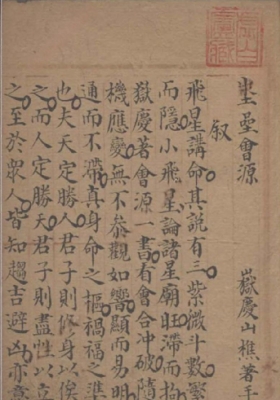 會源
嶽慶山樵著手
叙
飛星講命其說有三紫微斗數繁
而隱小飛星論諸星廟旺滯而拘
嶽慶著會源一書有會合冲破隨
機應變無不叅觀如響顯而易明
通而不滯真身命之樞禍福之準
也夫天定勝人君子則修身以俟
之而人定勝天君子則盡性以立
之至於衆人皆知趨吉避凶亦意